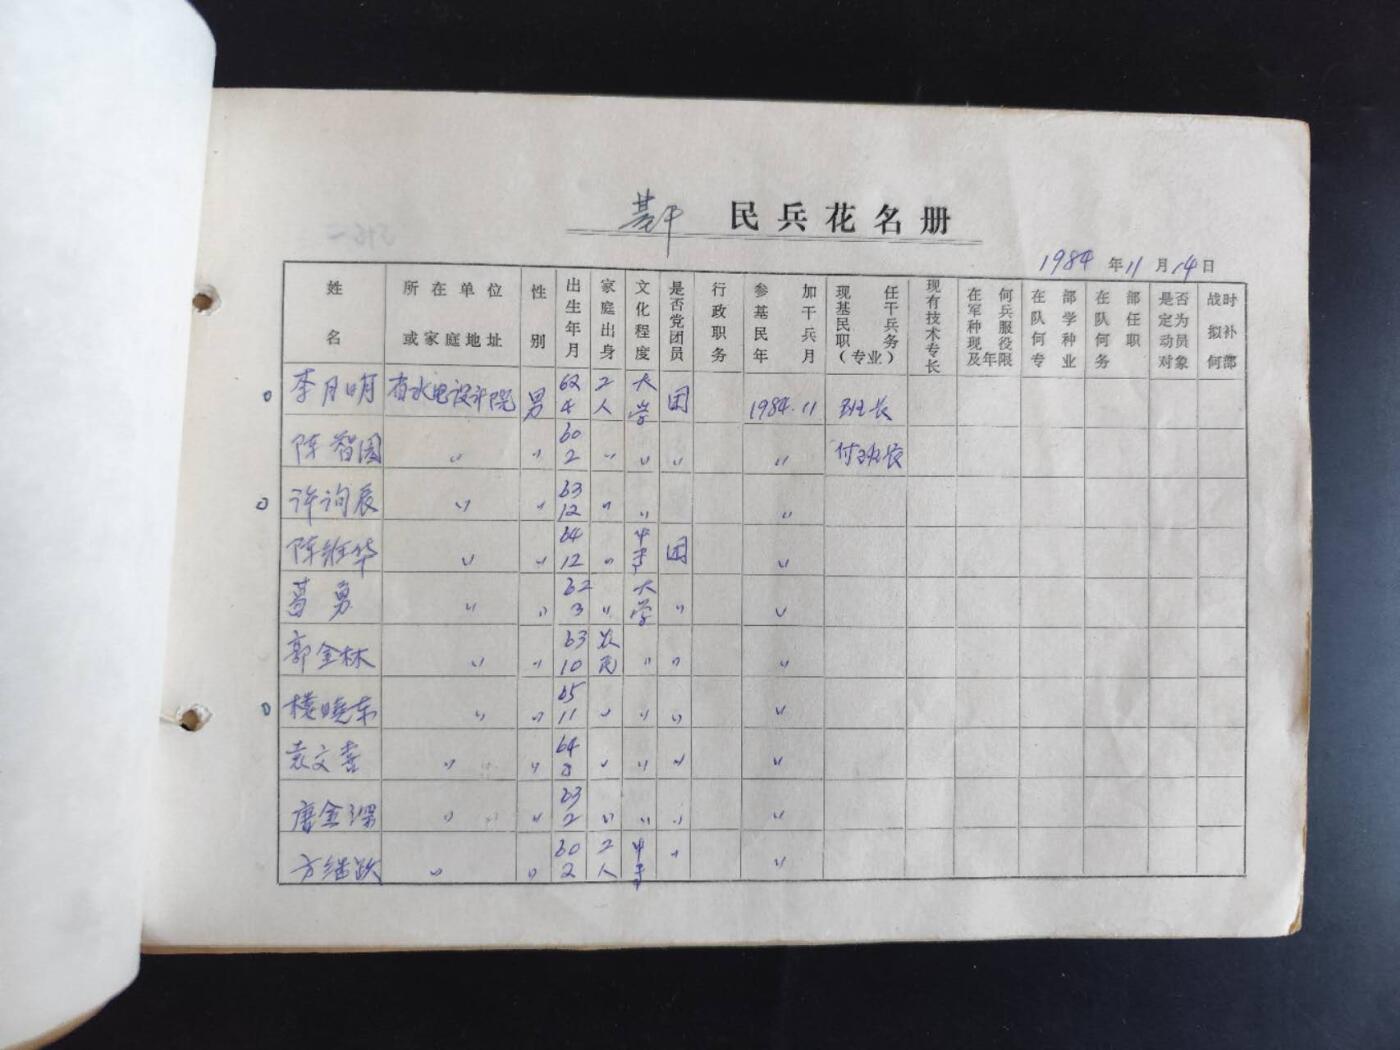 基干 民兵花名册
1984年11月14日
姓名 所在单位或家庭地址 性别 出生年月 家庭出身 文化程度 是否党团员 行政职务 参加基干民兵年月 现任基干民兵职务(专业) 现有技术专长 在何军兵种服现役及年限 在部队学何种专业 在部队任何职务 是否定为动员对象 战时拟补何部
李月明 省水电设计院 男 62 4 工人 大学 团 1984.11 班长
陈智园 〃 〃 60 2 〃 〃 〃 〃 付班长
许询辰 〃 〃 63 12 〃 〃 〃
陈 华 〃 〃 64 12 〃 中专 团 〃
葛勇 〃 〃 62 3 〃 大学 〃 〃
郭金林 〃 〃 63 10 农民 〃 〃 〃
楼晓东 〃 〃 65 11 〃 〃 〃 〃
袁文喜 〃 〃 64 8 〃 〃 〃 〃
唐金深 〃 〃 63 2 〃 〃 〃 〃
方继跃 〃 〃 60 2 工人 中专 〃 〃